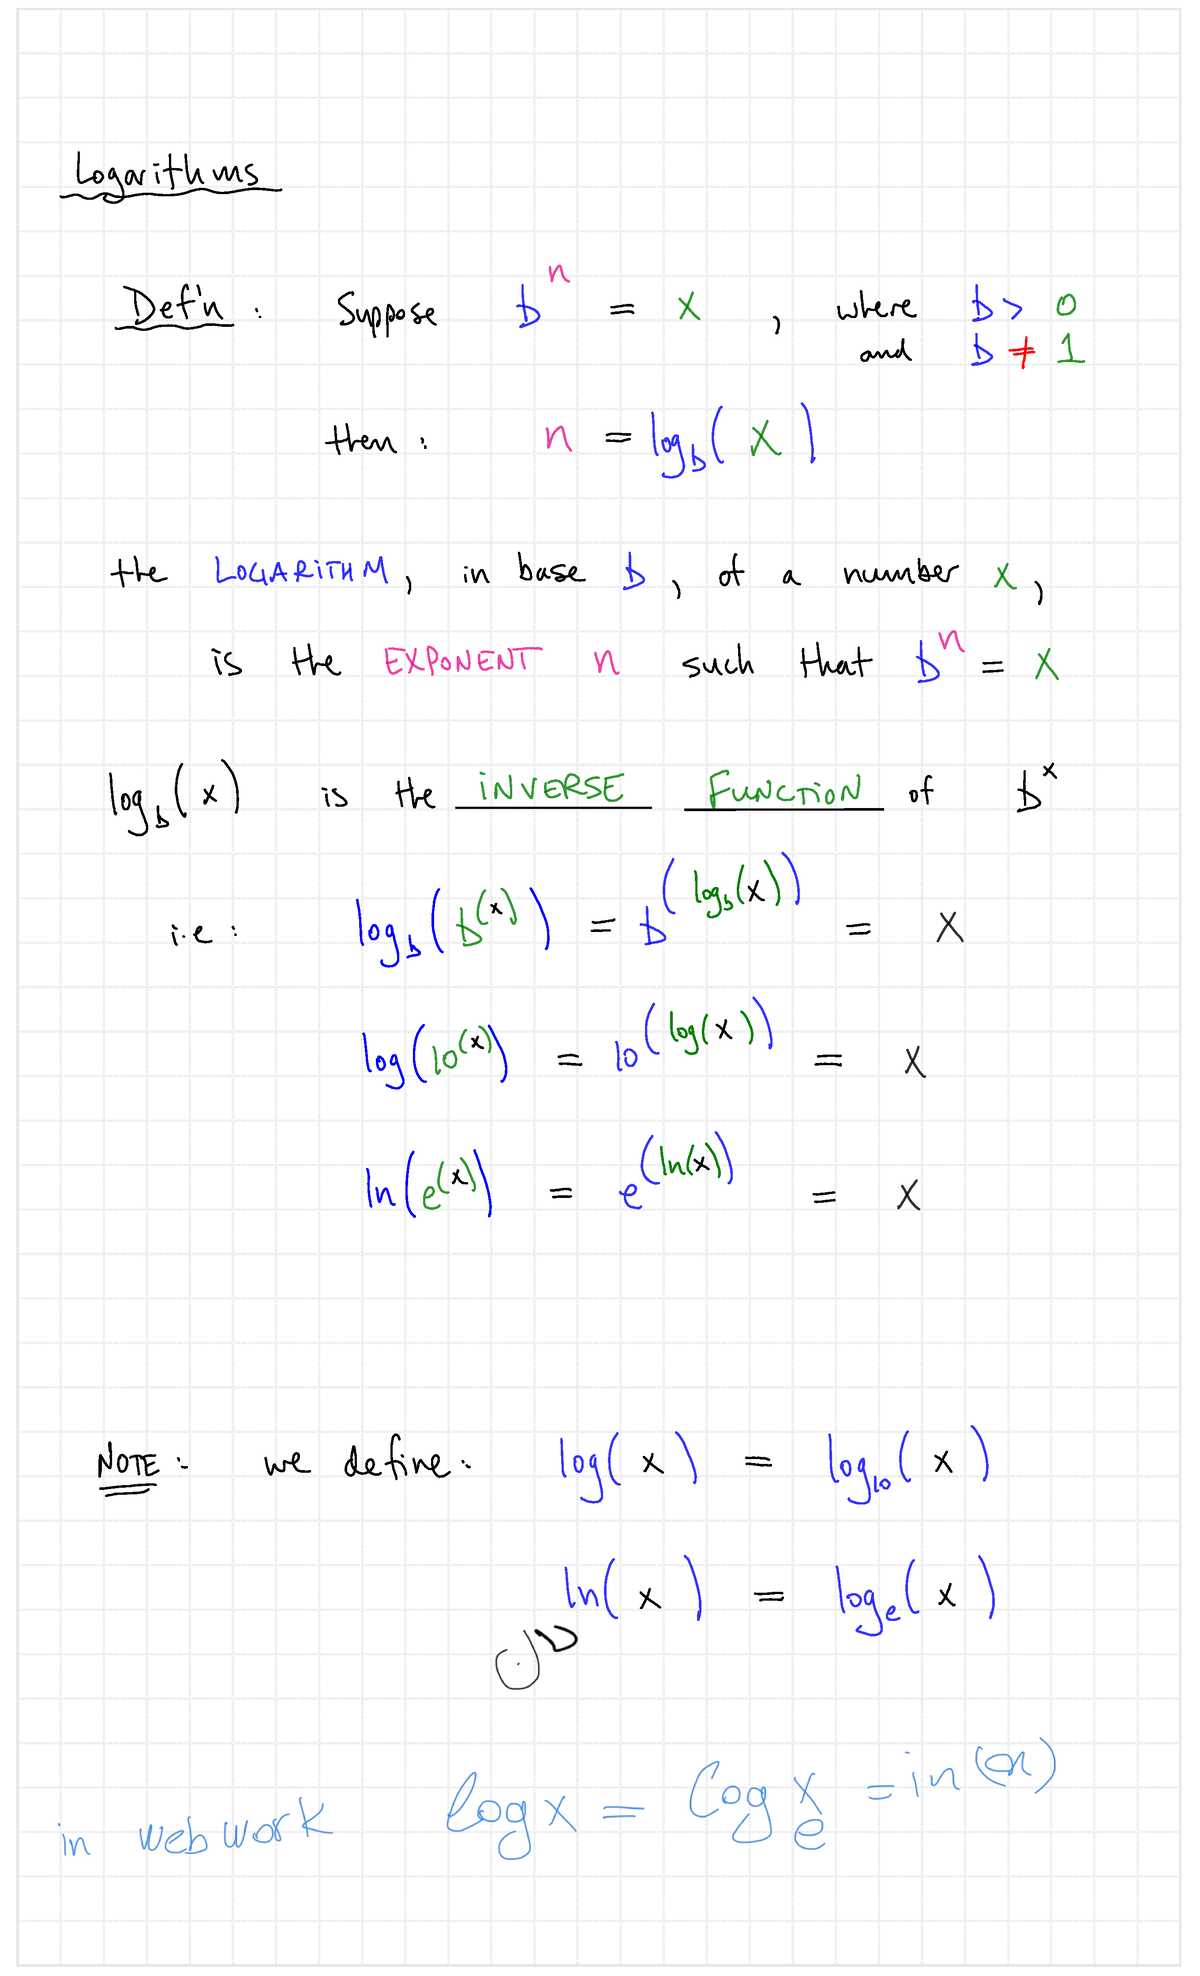 Logarithms
Def'n : Suppose bⁿ = x , where b > 0
and b ≠ 1
then : n = log_b( x )
the LOGARITHM, in base b, of a number x,
is the EXPONENT n such that bⁿ = x
log_b(x) is the INVERSE FUNCTION of b^x
i.e : log_b(b^(x)) = b^(log_b(x)) = x
log(10^(x)) = 10^(log(x)) = x
ln(e^(x)) = e^(ln(x)) = x
NOTE : we define : log( x ) = log_10( x )
ln( x ) = log_e( x )
in webwork log x = log x_e = in